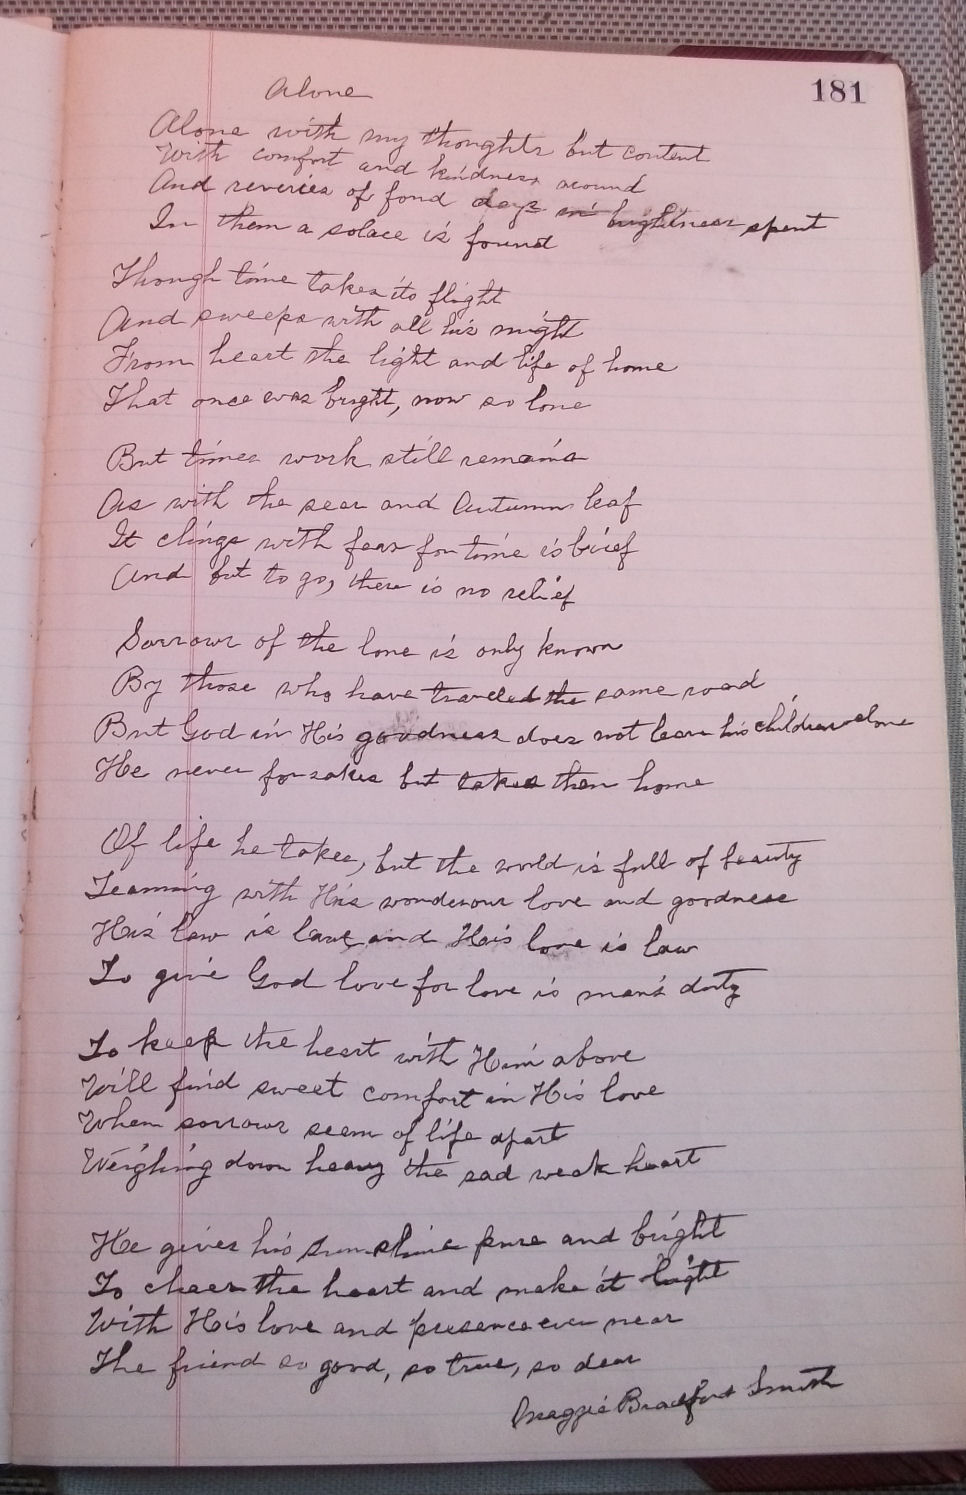 181
Alone
Alone with my thoughts but content
With comfort and kindness around
And reveries of fond days in brightness spent
In them a solace is found
Though time takes its flight
And sweeps with all his might
From heart the light and life of home
That once was bright, now so lone
But times work still remains
As with the sear and Autumn leaf
It clings with fear for time is brief
And but to go, there is no relief
Sorrows of the lone is only known
By those who have traveled the same road
But God in His goodness does not leave his children alone
He never forsakes but takes them home
Of life he takes, but the world is full of beauty
Teaming with His wonderous love and goodness
His law is love and His love is law
To give God love for love is man's duty
To keep the heart with Him above
Will find sweet comfort in His love
When sorrows seem of life apart
Weighing down heavy the sad weak heart
He gives his sunshine pure and bright
To cheer the heart and make it light
With His love and presence ever near
The friend so good, so true, so dear
Maggie Bradford Smith